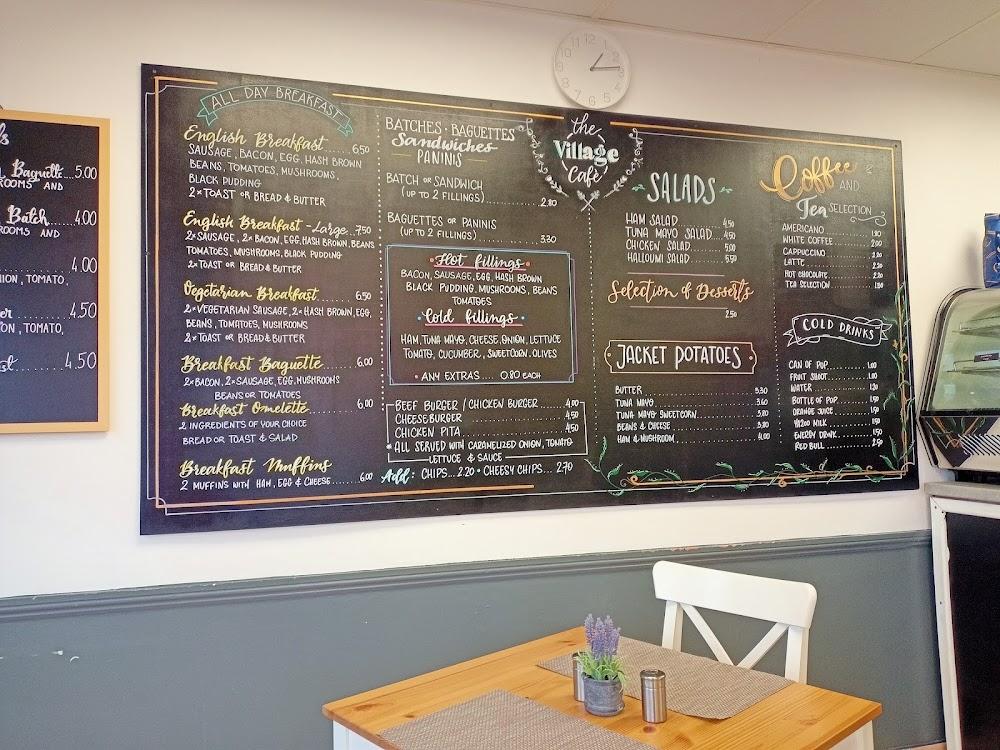 ls
Baguette...5.00
ROOMS AND
Batch......4.00
ROOMS AND
4.00
NION, TOMATO,
er.......4.50
ON, TOMATO,
st......4.50
ALL DAY BREAKFAST
English Breakfast......6.50
SAUSAGE, BACON, EGG, HASH BROWN
BEANS, TOMATOES, MUSHROOMS,
BLACK PUDDING
2 x TOAST OR BREAD & BUTTER
English Breakfast - Large...7.50
2 x SAUSAGE, 2 x BACON, EGG, HASH BROWN, BEANS
TOMATOES, MUSHROOMS, BLACK PUDDING
2 x TOAST OR BREAD & BUTTER
Vegetarian Breakfast.......6.50
2 x VEGETARIAN SAUSAGE, 2 x HASH BROWN, EGG,
BEANS, TOMATOES, MUSHROOMS
2 x TOAST OR BREAD & BUTTER
Breakfast Baguette.......6.00
2 x BACON, 2 x SAUSAGE, EGG, MUSHROOMS
BEANS OR TOMATOES
Breakfast Omelette..........6.00
2 INGREDIENTS OF YOUR CHOICE
BREAD OR TOAST & SALAD
Breakfast Muffins
2 MUFFINS WITH HAM, EGG & CHEESE........6.00
BATCHES · BAGUETTES
Sandwiches
PANINIS
BATCH OR SANDWICH
(UP TO 2 FILLINGS)..............2.80
BAGUETTES OR PANINIS
(UP TO 2 FILLINGS)..............3.30
Hot fillings
BACON, SAUSAGE, EGG, HASH BROWN
BLACK PUDDING, MUSHROOMS, BEANS
TOMATOES
Cold fillings
HAM, TUNA MAYO, CHEESE, ONION, LETTUCE
TOMATO, CUCUMBER, SWEETCORN, OLIVES
• ANY EXTRAS.... 0.80 EACH
BEEF BURGER / CHICKEN BURGER.......4.00
CHEESEBURGER..................4.50
CHICKEN PITA..................4.50
* ALL SERVED WITH CARAMELIZED ONION, TOMATO
LETTUCE & SAUCE
Add: CHIPS...2.20 • CHEESY CHIPS....2.70
the
Village
Café
SALADS
HAM SALAD..............4.50
TUNA MAYO SALAD....4.50
CHICKEN SALAD........5.00
HALLOUMI SALAD.......5.50
Selection of Desserts
2.50
JACKET POTATOES
BUTTER..................3.30
TUNA MAYO..............3.60
TUNA MAYO SWEETCORN.......3.80
BEANS & CHEESE..............3.80
HAM & MUSHROOM..............4.00
Coffee
AND
Tea SELECTION
AMERICANO...........1.80
WHITE COFFEE........2.00
CAPPUCCINO..........2.20
LATTE...............2.20
HOT CHOCOLATE.......2.20
TEA SELECTION.......1.80
COLD DRINKS
CAN OF POP........1.00
FRUIT SHOOT.......1.00
WATER.............1.20
BOTTLE OF POP.....1.50
ORANGE JUICE......1.50
MILK..............1.50
ENERGY DRINK......1.50
RED BULL..........2.50
12
1
2
3
4
5
6
7
8
9
10
11